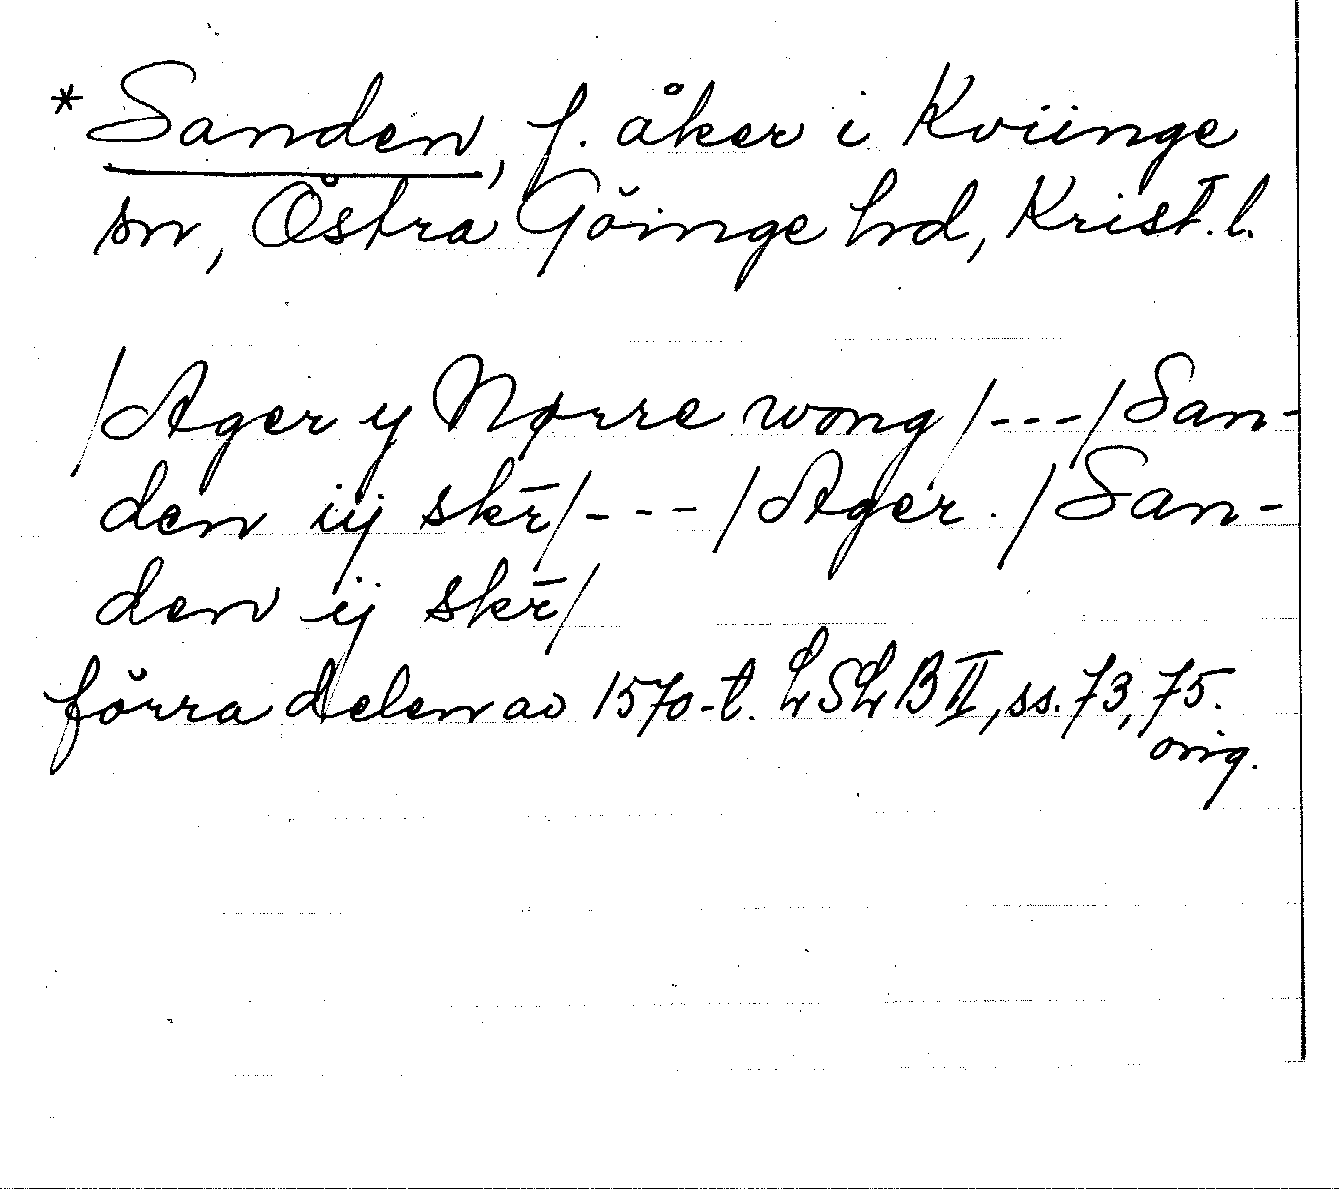 *Sanden, f. åker i Kviinge
sn, Östra Göinge hd, Krist. l.
/Ager y Nørre wong/---/San-
den iij skr̄/---/Ager. /San-
den ij skr̄/
förra delen av 1570-t. LSLB II, ss. 73, 75.
orig.